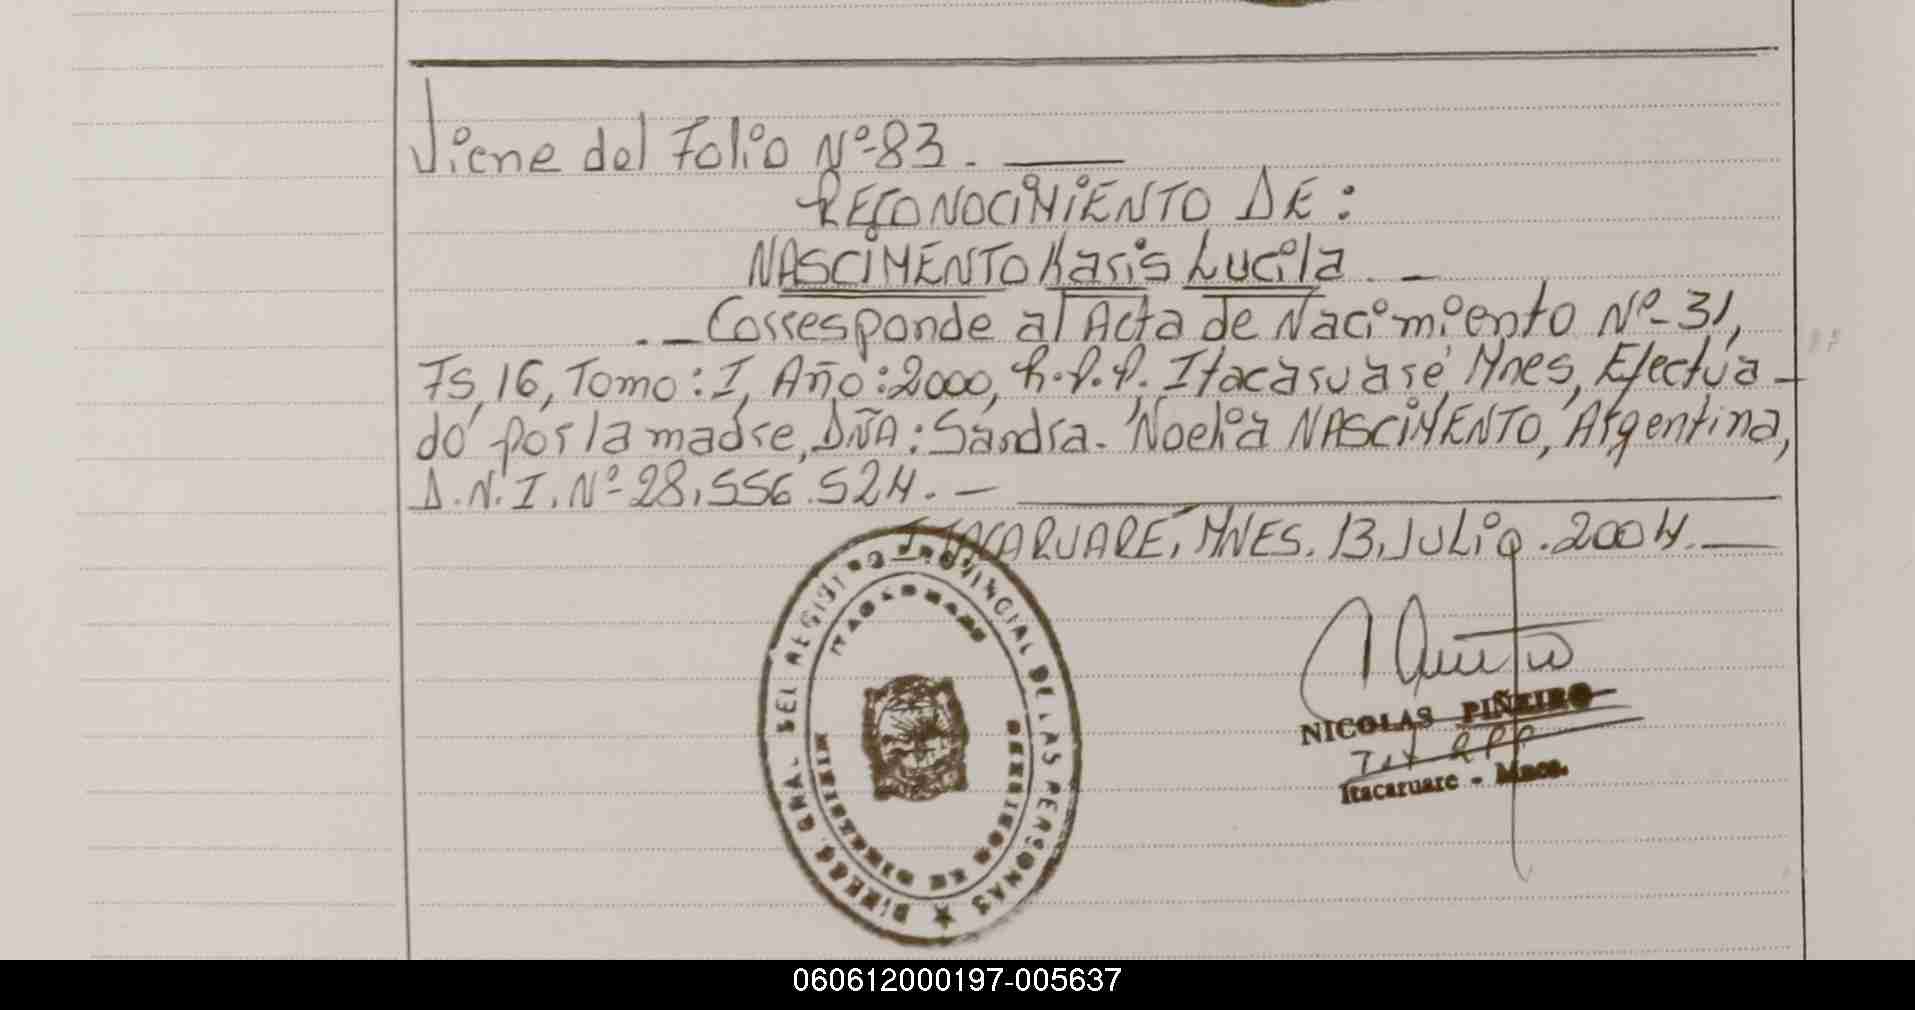 Viene del Folio Nº-83.
RECONOCIMIENTO DE:
NASCIMENTO Karis Lucila. -
. - Corresponde al Acta de Nacimiento Nº-31,
Fs, 16, Tomo: I, Año: 2000, R.P.P. Itacaruaré, Mnes, Efectua-
do por la madre, DÑA: Sandra. Noelia NASCIMENTO, Argentina,
D.N.I. Nº-28.556.524. -
ITACARUARE, MNES. 13, JULio. 2004.
DIREC. GRAL. DEL REGISTRO PROVINCIAL DE LAS PERSONAS
ITACARUARE
NICOLAS PIÑEIRO
RPP
Itacaruare - Mnes.
060612000197-005637